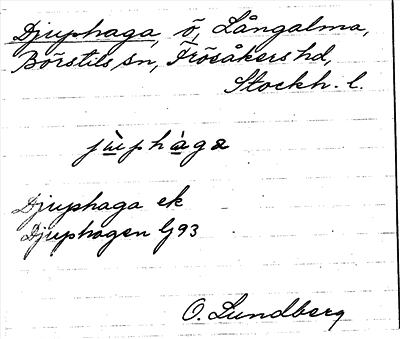 Djuphaga, ö, Långalma,
Börstils sn, Frösåkers hd,
Stockh. l.
jùphàga
Djuphaga ek
Djuphagen G93
O. Lundberg